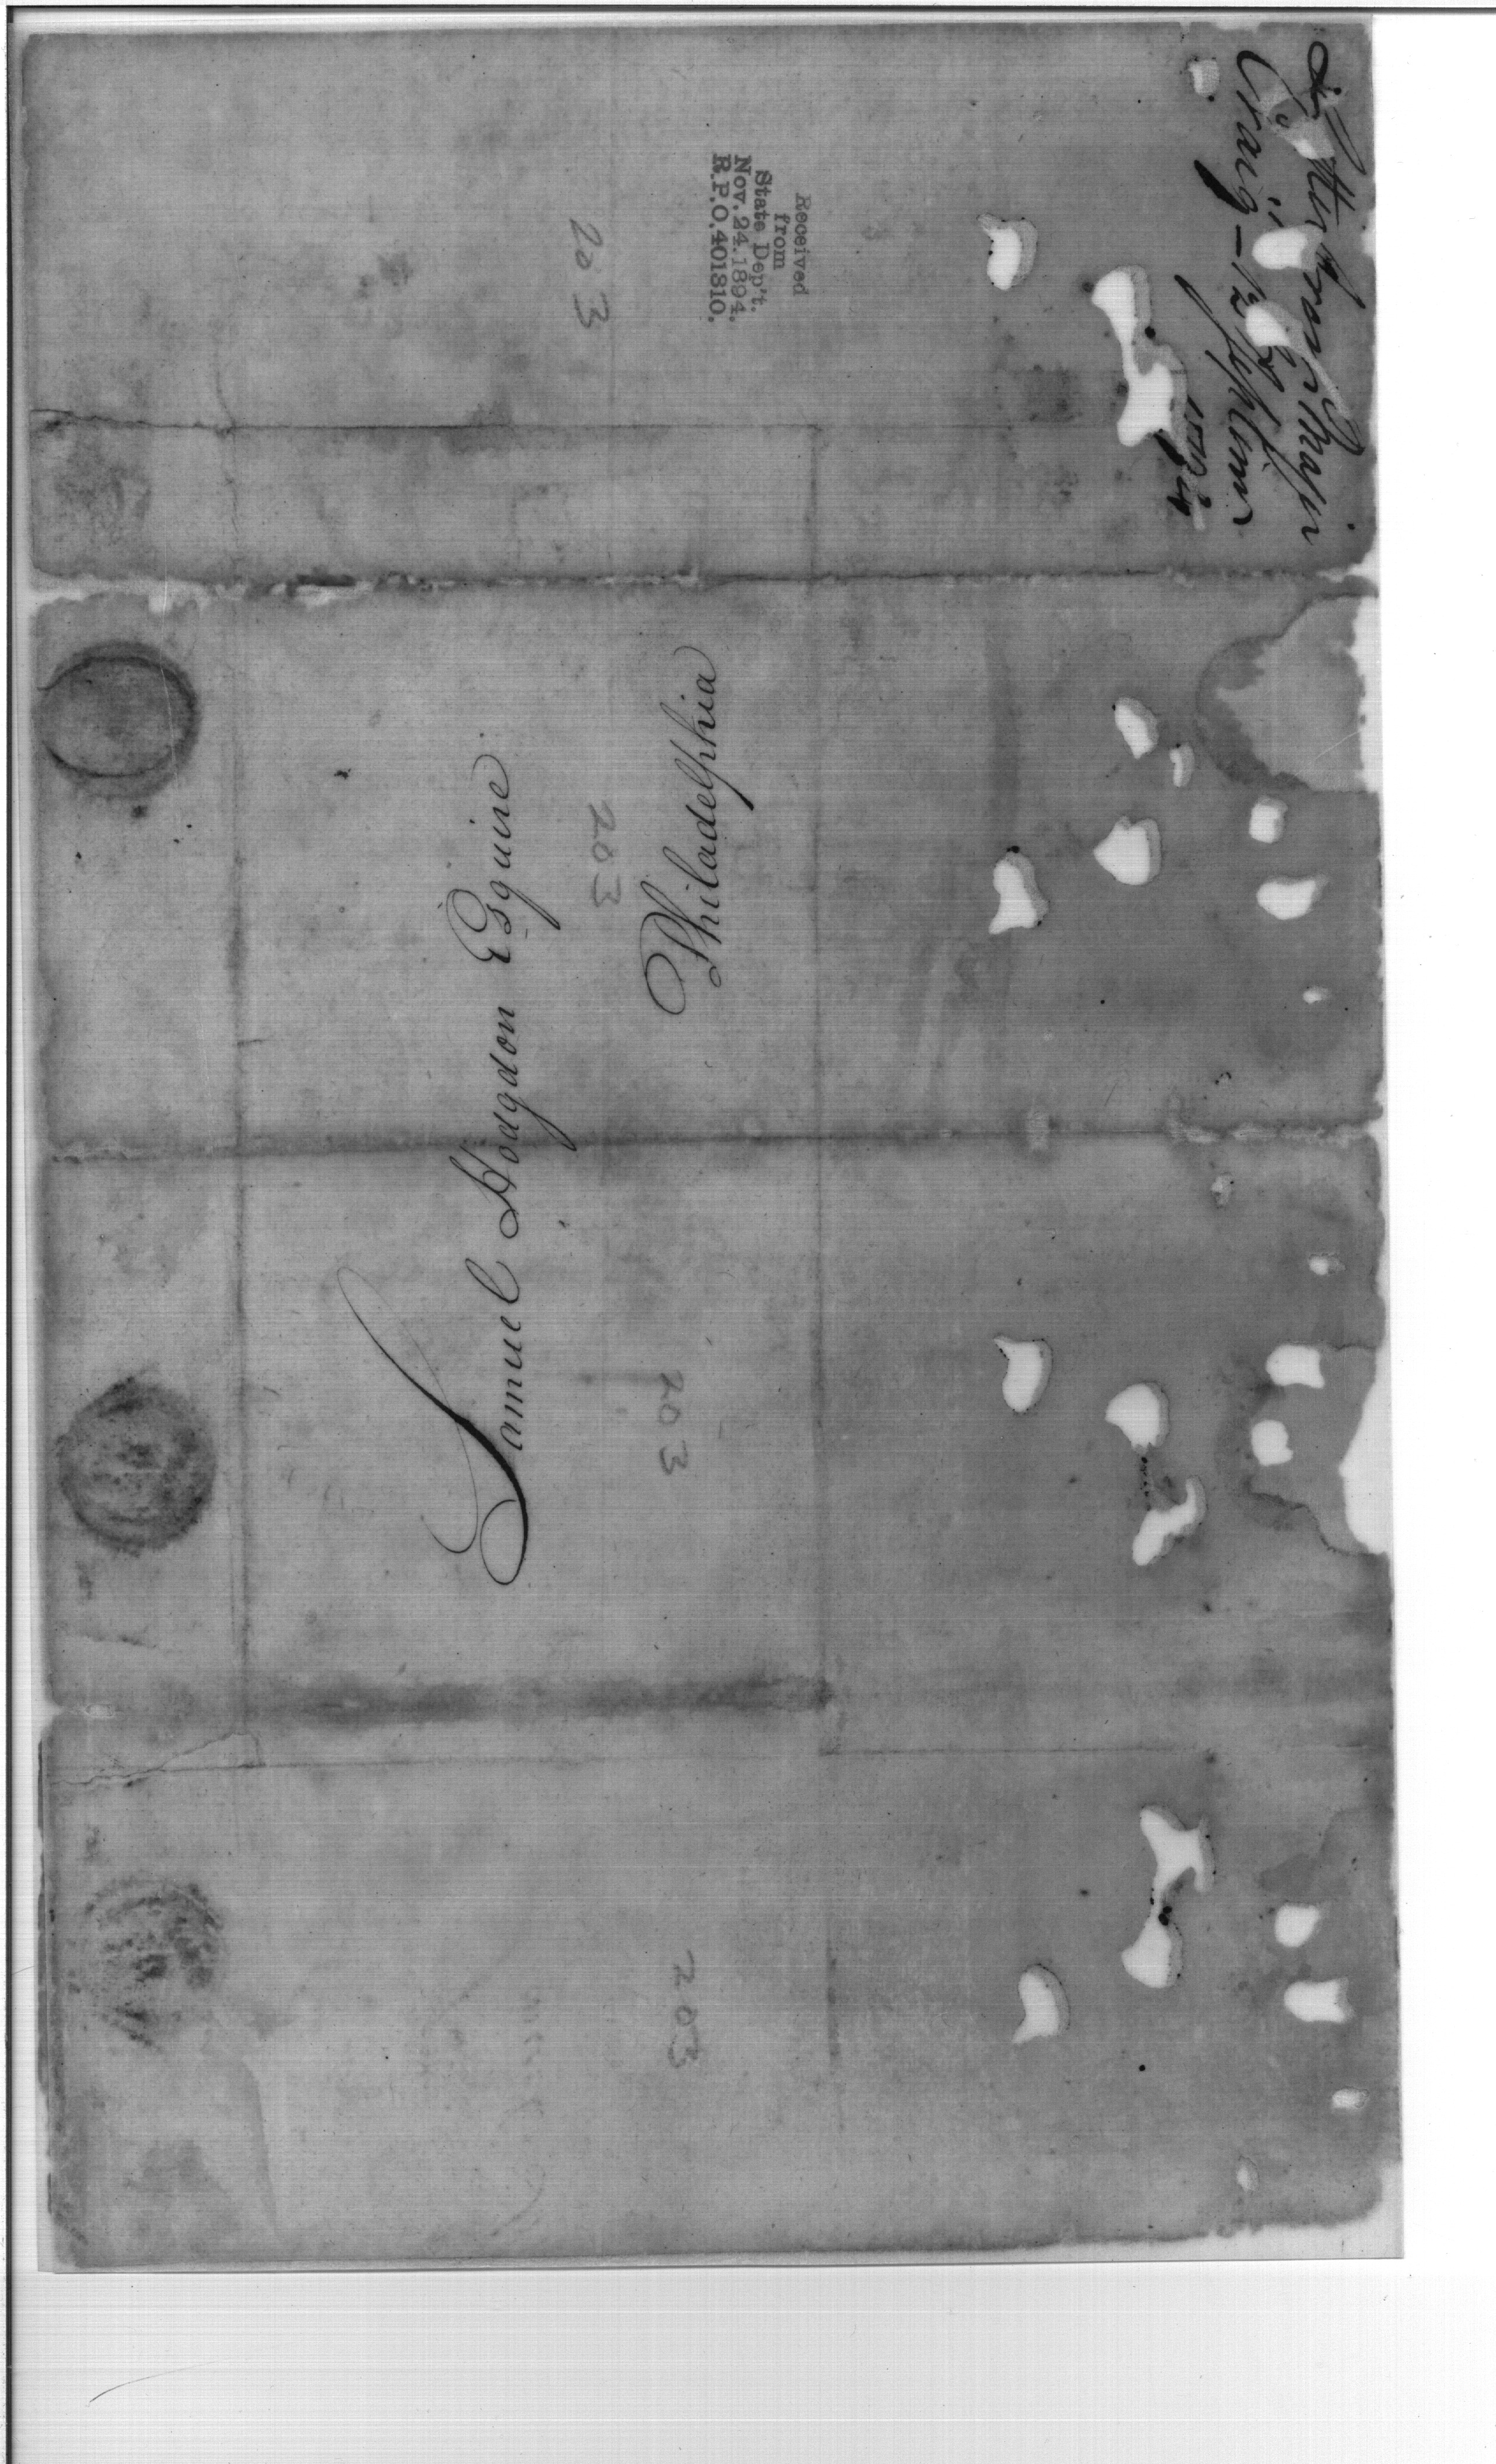 Letter from Major
Craig – 12 Septem
Received
from
State Dep't.
Nov. 24. 1894.
R.P.O. 401810.
203
Samuel Hodgdon Esquire
203
Philadelphia
203
203